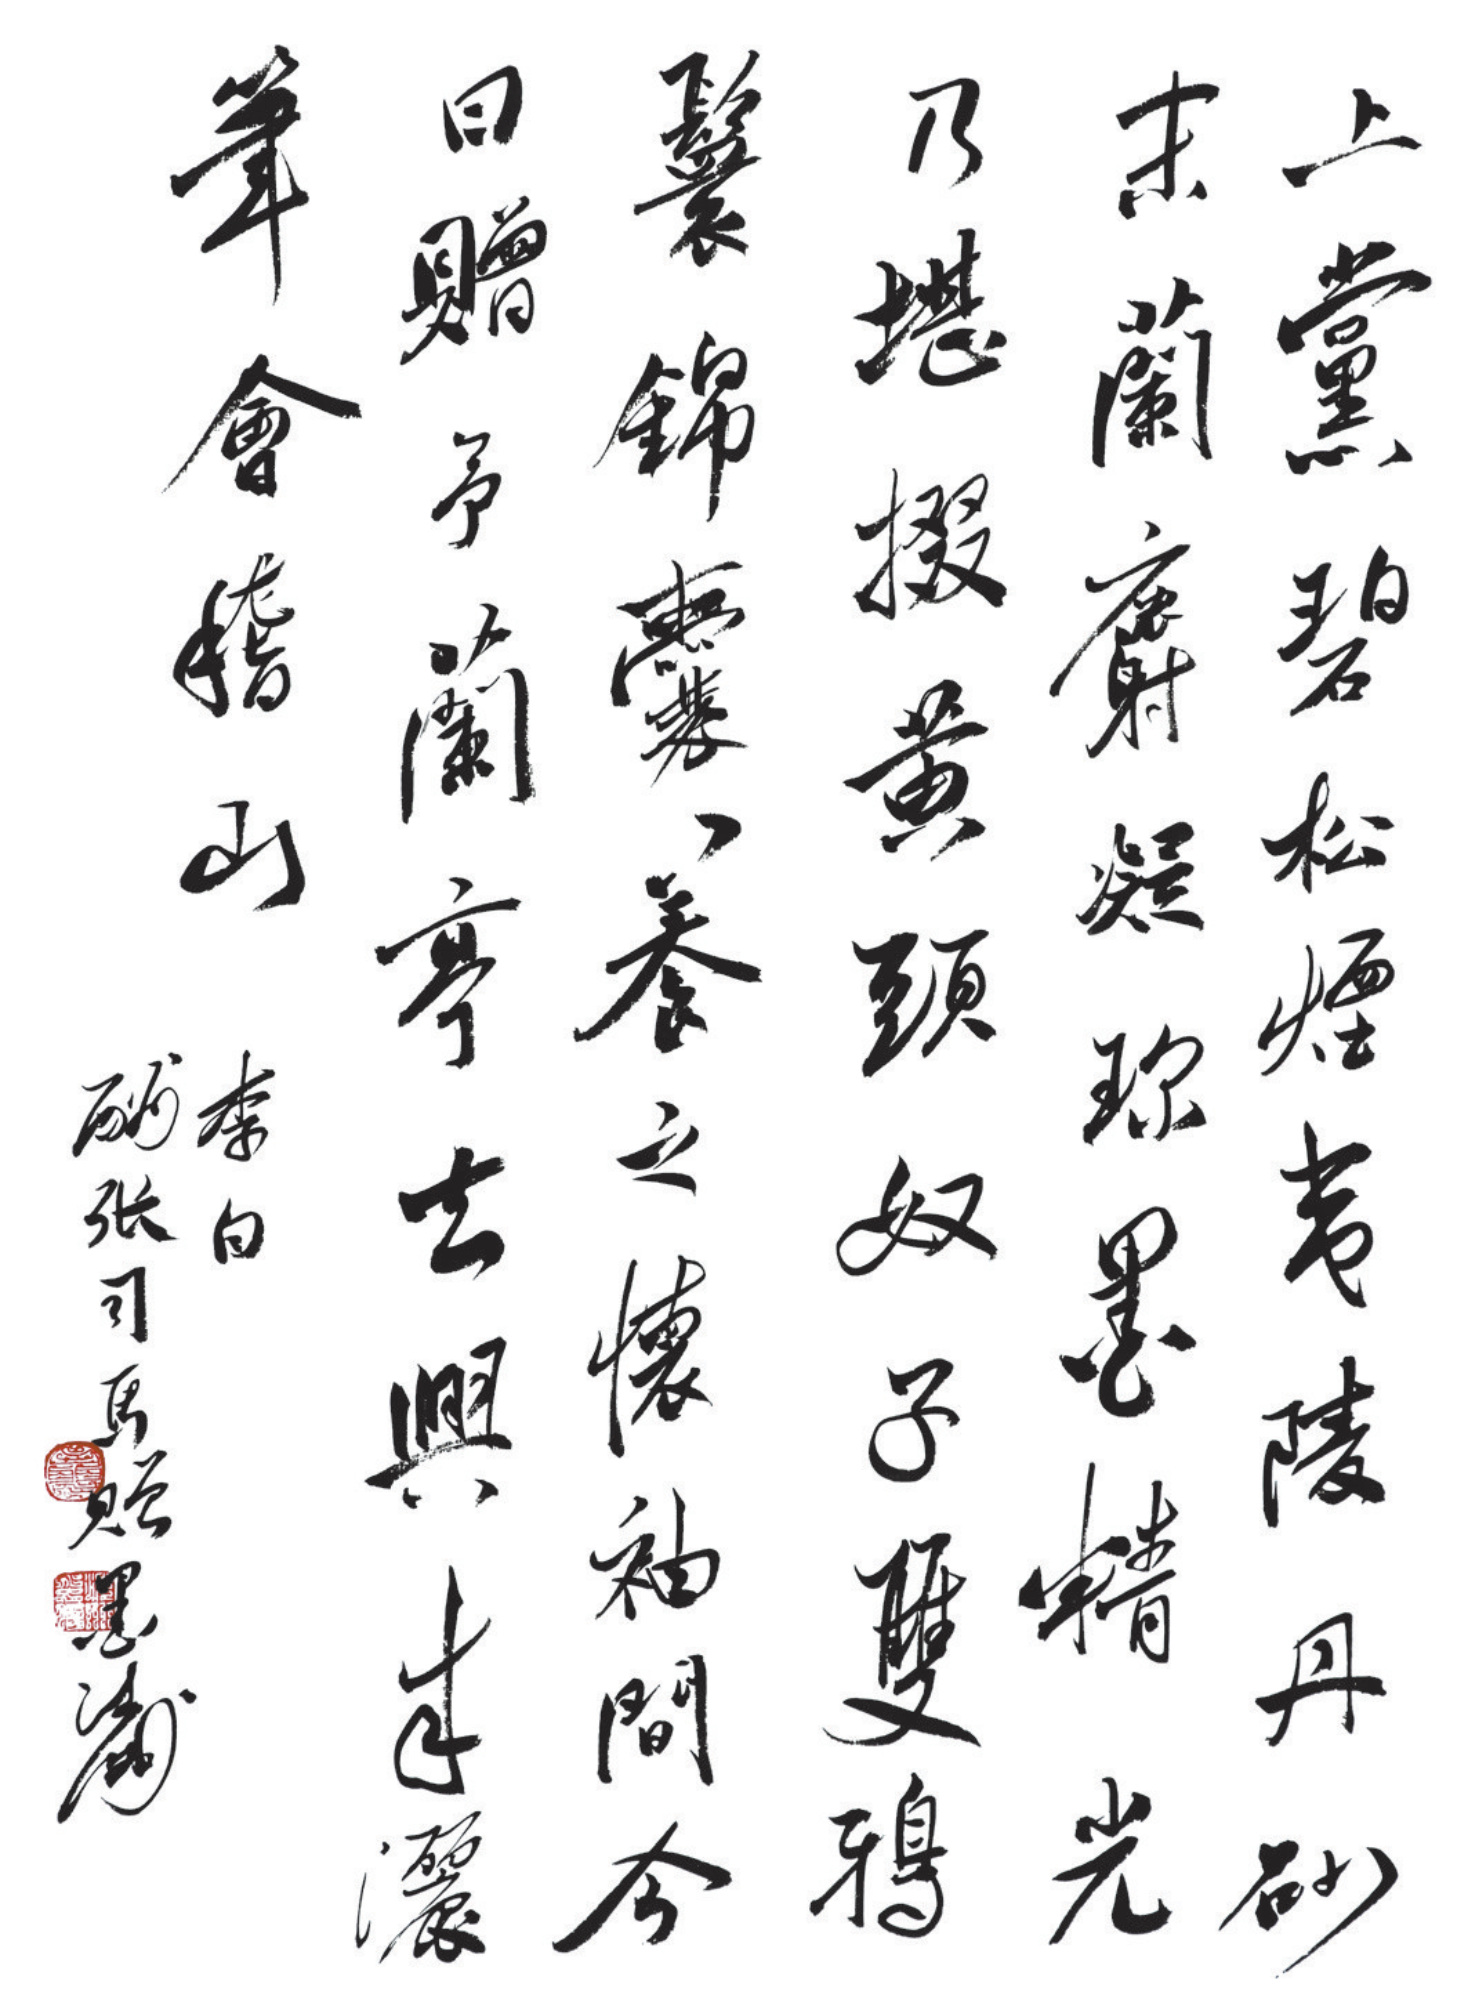 上黨碧松煙夷陵丹砂
末蘭麝凝珍墨精光
乃堪掇黄頭奴子雙鴉
鬟錦囊養之懷袖間今
日贈予蘭亭去興來灑
筆會稽山
李白
酬張司馬贈墨